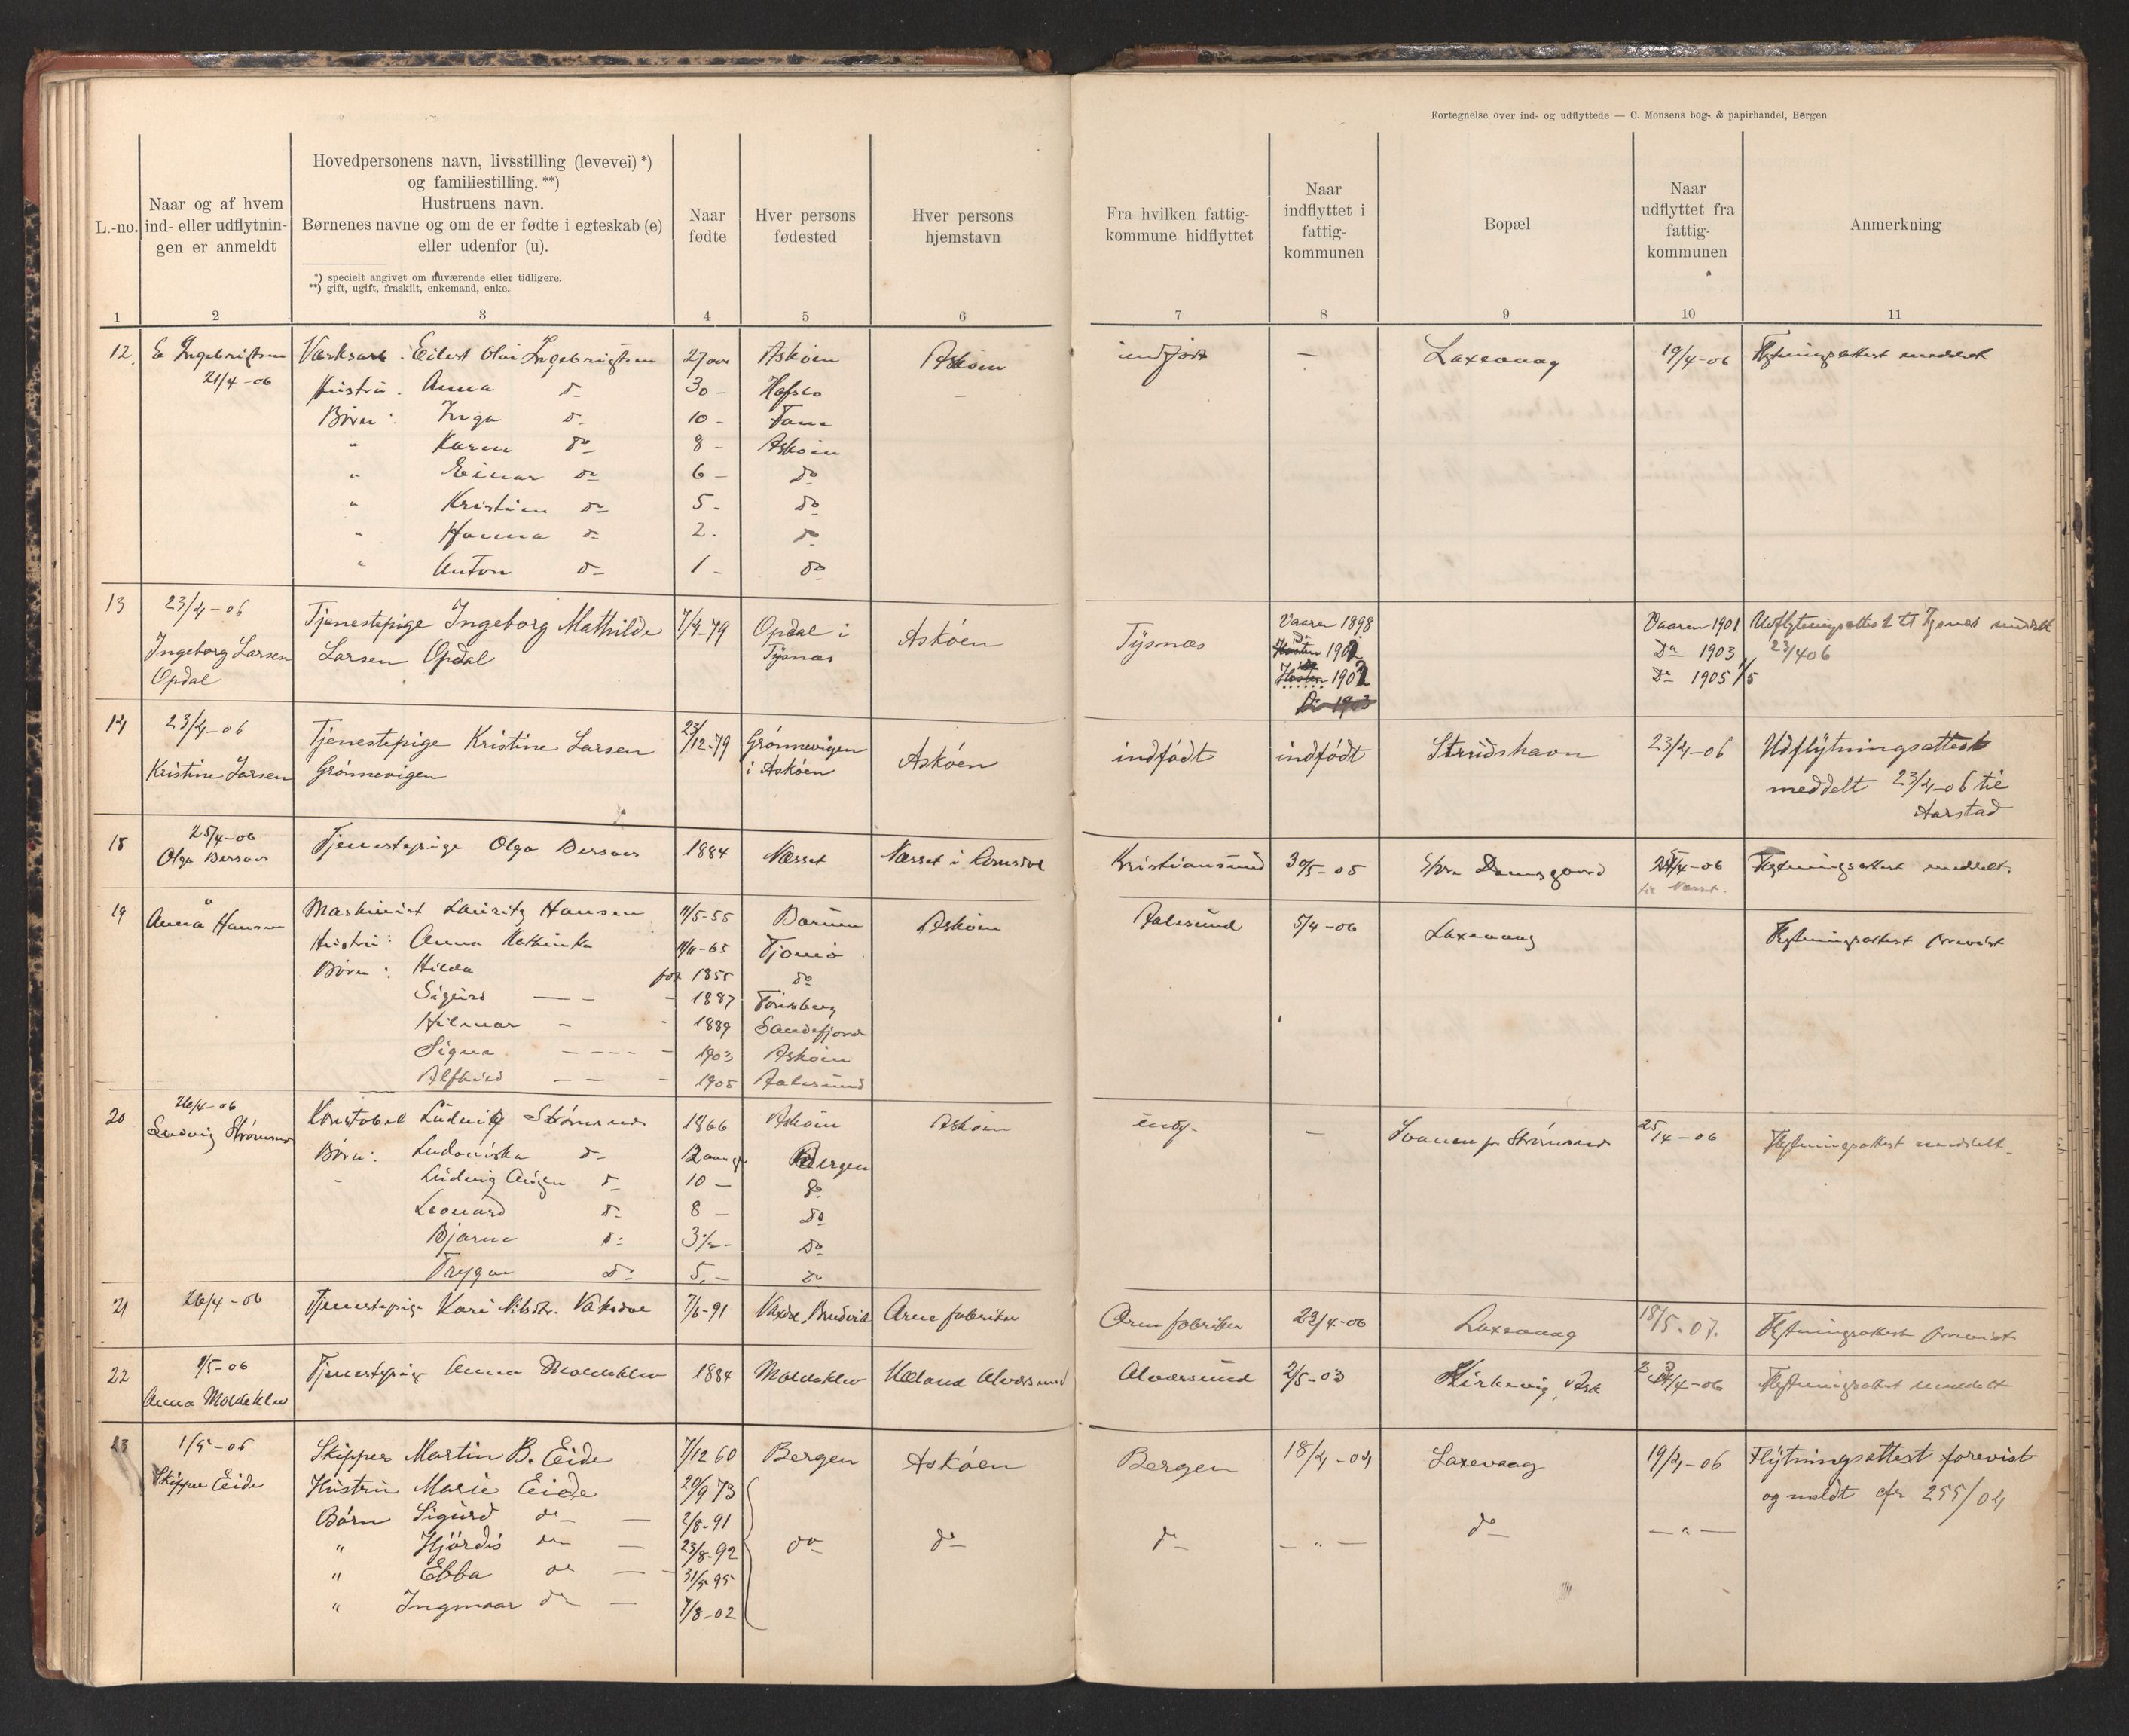 Fortegnelse over ind- og udflyttede — C. Monsens bog- & papirhandel, Bergen
L.-no.
Naar og af hvem
ind- eller udflytnin-
gen er anmeldt
Hovedpersonens navn, livsstilling (levevei) *)
og familiestilling. **)
Hustruens navn.
Børnenes navne og om de er fødte i egteskab (e)
eller udenfor (u).
*) specielt angivet om nuværende eller tidligere.
**) gift, ugift, fraskilt, enkemand, enke.
Naar
fødte
Hver persons
fødested
Hver persons
hjemstavn
Fra hvilken fattig-
kommune hidflyttet
Naar
indflyttet i
fattig-
kommunen
Bopæl
Naar
udflyttet fra
fattig-
kommunen
Anmerkning
1 2 3 4 5 6 7 8 9 10 11
12. E Ingebrigtsen Eilert Olai Ingebrigtsen 27 aar Askøen Askøen indfødt — Laxevaag 19/4-06 Flytningsattest meddelt
21/4-06 Hustru. Anna do 30 - Hafslo
Børn: Inga do 10 - Fana
" Karen do 8 - Askøen
" Einar do 6 - do
" Kristian do 5 - do
" Hanna do 2 - do
" Anton do 1 - do
13 23/4-06 Tjenestepige Ingeborg Mathilde 7/4-79 Opdal i Askøen Tysnæs Vaaren 1898 Vaaren 1901 Udflytningsattest til Tysnes meddelt
Ingeborg Larsen Larsen Opdal Tysnæs Høsten 1901 Do 1903 23/4 06
Opdal Høsten 1902 Do 1905 1/5
Do 1903
14 23/4-06 Tjenestepige Kristine Larsen 23/12-79 Grønnevigen Askøen indfødt indfødt Strudshavn 23/4-06 Udflytningsattest
Kristine Larsen Grønnevigen i Askøen meddelt 23/4-06 til
Aarstad
18 25/4-06 Tjenestepige Olga 1884 Næsset Næsset i Romsdal Kristiansund 30/5-05 Damsgaard 25/4-06 Flytningsattest meddelt.
Olga til Næsset.
19 " Maskinist Lauritz Hansen 11/5-55 Bærum Askøen Aalesund 5/4-06 Laxevaag Flytningsattest forevist
Anna Hansen Hustru: Anna Kathinka 11/11-65 Tjømø
Børn: Hilda født 1855 do
Sigurd — - - 1887 Tønsberg
Hilmar - - 1889 Sandefjord
Signe - - - - - 1903 Askøen
Alfhild - - - 1905 Aalesund
20 26/4-06 Konstabel Ludvig Strømsnes 1866 Askøen Askøen indf. — Strømsnes 25/4-06 Flytningsattest meddelt.
Ludvig Strømsnes Børn: Ludoviska do 12 aar Bergen
- Ludvig do 10 — do
Leonard do 8 - do
Bjarne do 3½ - do
Trygve do 5. - do
21 26/4-06 Tjenestepige Kari Nilsdtr. Vaksdal 7/6-91 Arne fabriker Arne fabriker 23/4-06 Laxevaag 18/5.07. Flytningsattest forevist
22 1/5-06 Tjenestepige Anna Moldeklev 1884 Moldeklev Mæland Alversund Alversund 2/5-03 Kirkevig, Ask /4-06 Flytningsattest meddelt
Anna Moldeklev
23 1/5-06 Skipper Martin B. Eide 7/12 60 Bergen Askøen Bergen 18/4-04 Laxevaag 19/4-06 Flytningsattest forevist
Skipper Eide Hustru Marie Eide 20/9 73 og meldt cfr 255/04
Børn Sigurd do — 2/8-91
" Hjørdis do — 23/8-92 do do do — " — do — " —
" Ebba do — 31/5 95
" Ingmaar do — 7/8-02